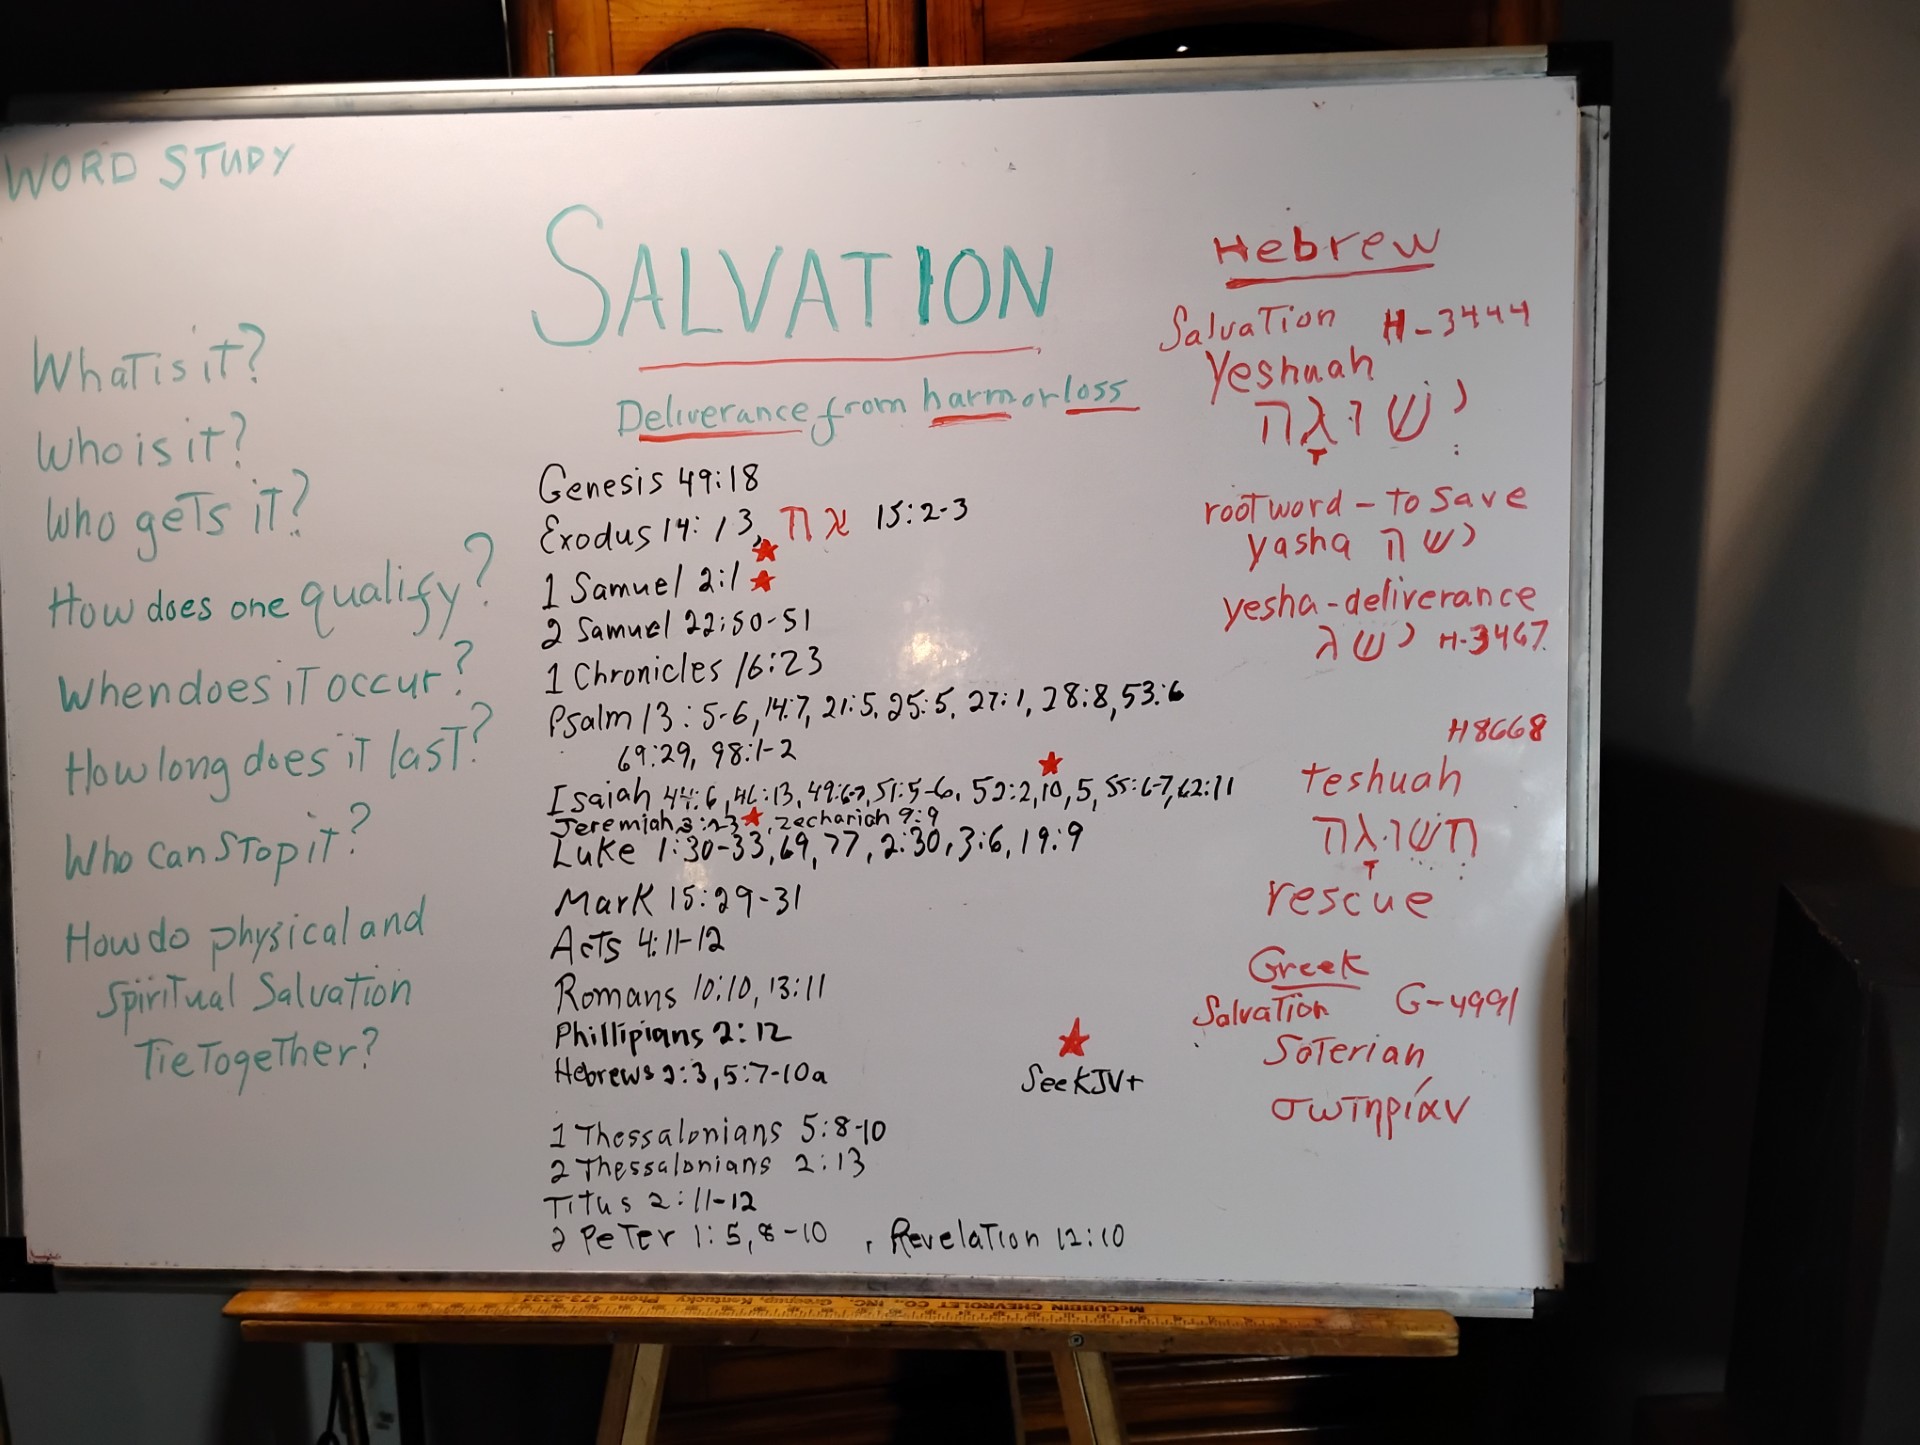 WORD STUDY
SALVATION
Deliverance from harm or loss
What is it?
Who is it?
Who gets it?
How does one qualify?
When does it occur?
How long does it last?
Who can stop it?
How do physical and
Spiritual Salvation
Tie Together?
Genesis 49:18
Exodus 14:13, את 15:2-3
1 Samuel 2:1
2 Samuel 22:50-51
1 Chronicles 16:23
Psalm 13:5-6, 14:7, 21:5, 25:5, 27:1, 28:8, 53:6
69:29, 98:1-2
Isaiah 44:6, 46:13, 49:6-7, 51:5-6, 52:2, 10, 5, 55:6-7, 62:11
Jeremiah 3:23, Zechariah 9:9
Luke 1:30-33, 69, 77, 2:30, 3:6, 19:9
Mark 15:29-31
Acts 4:11-12
Romans 10:10, 13:11
Phillipians 2:12
Hebrews 2:3, 5:7-10a
1 Thessalonians 5:8-10
2 Thessalonians 2:13
Titus 2:11-12
2 Peter 1:5, 8-10, Revelation 12:10
See KJV+
Hebrew
Salvation H-3444
Yeshuah
ישועה
root word - to save
yasha ישה
yesha - deliverance
ישע H-3467
H8668
teshuah
תשועה
rescue
Greek
Salvation G-4991
Soterian
σωτηρίαν
McCUBBIN CHEVROLET CO., INC. Greenup, Kentucky Phone 473-